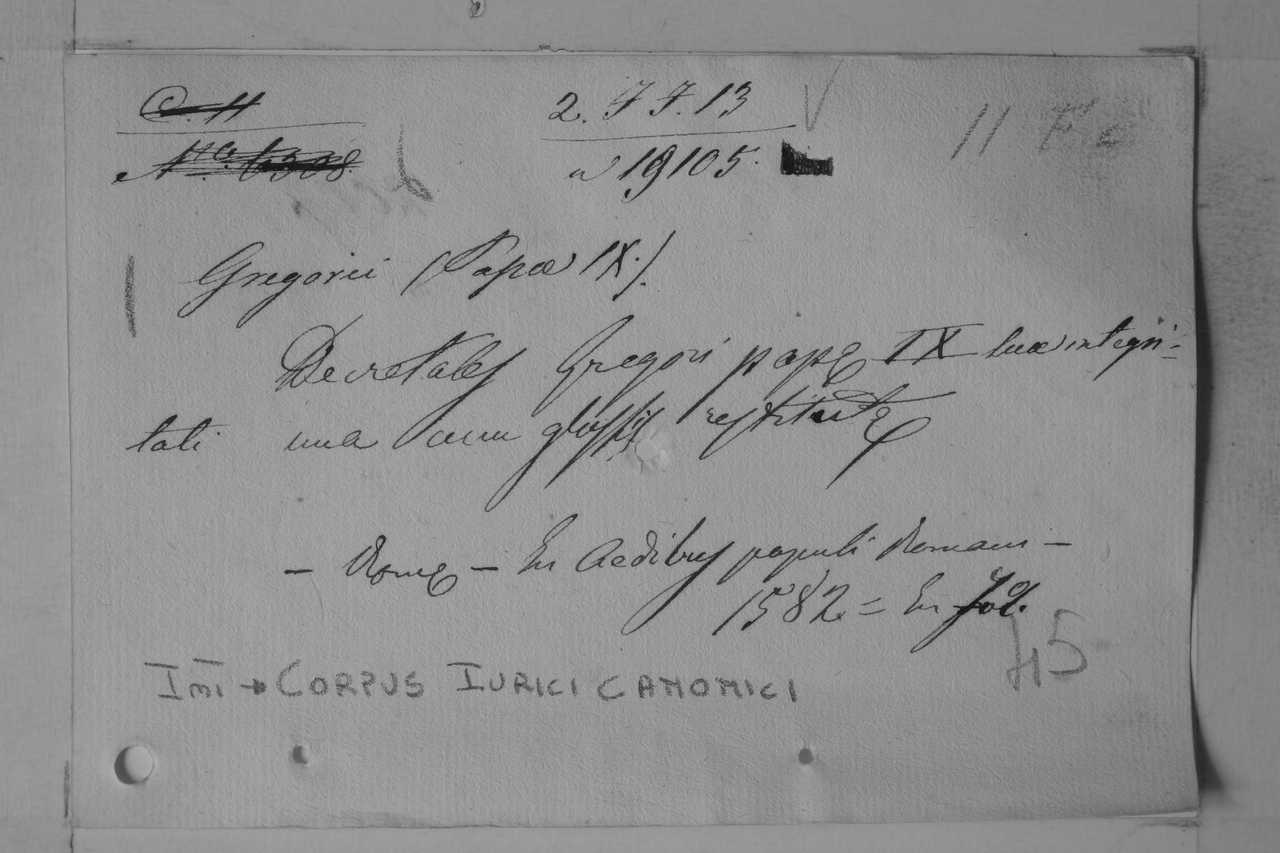 C. 11
2. F F. 13
11 F
Nº. 6308
n 19105.
Gregorii (Papæ IX.)
Decretales Gregori papę IX suæ integri-
tati una cum glossis restitutę
- Romę - In Aedibus populi Romani -
1582 = In fol.
45
Imi → CORPUS IURICI CANONICI